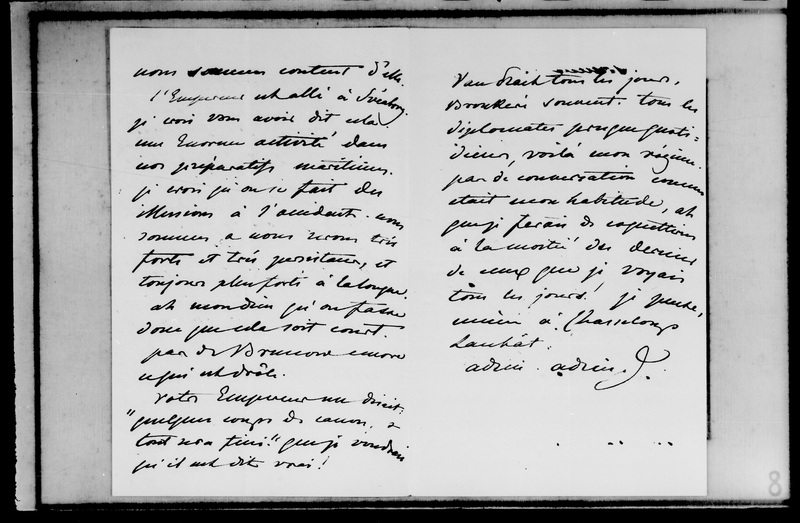 nous sommes content d'elle.
l'Empereur est allé à Sveaborg.
je crois vous avoir dit cela
une Enorme activité dans
nos préparatifs maritimes.
je crois qu'on se fait des
illusions à l'occident. nous
sommes et nous serons très
forts et très persistans, et
toujours plus forts à la longue.
ah mon dieu qu'on fasse
donc que cela soit court.
pas de Brunnow encore
ce qui est drôle.
votre Empereur me disait:
"quelques coups de canon, &
tout sera fini." que je voudrais
qu'il eut dit vrai!
Van Straten tous les jours,
Brouckère souvent. tous les
diplomates presque quoti=
diens, voilà mon régime.
pas de conversation comme
était mon habitude, ah
que je ferais de coquetteries
à la moitié des derniers
de ceux que je voyais
tous les jours! je pense,
même à Chasseloup
Laubat.
adieu. adieu.
8